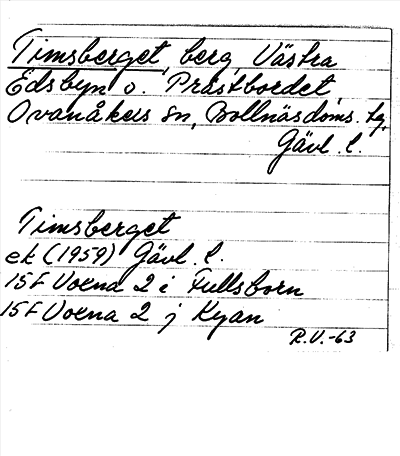 Timsberget, berg, Västra
Edsbyn o. Prästbordet,
Ovanåkers sn, Bollnäsdoms. tg,
Gävl. l.
Timsberget
ek (1959) Gävl. l.
15F Voxna 2 i Fullsborn
15F Voxna 2 j Kyan
R.V.-63